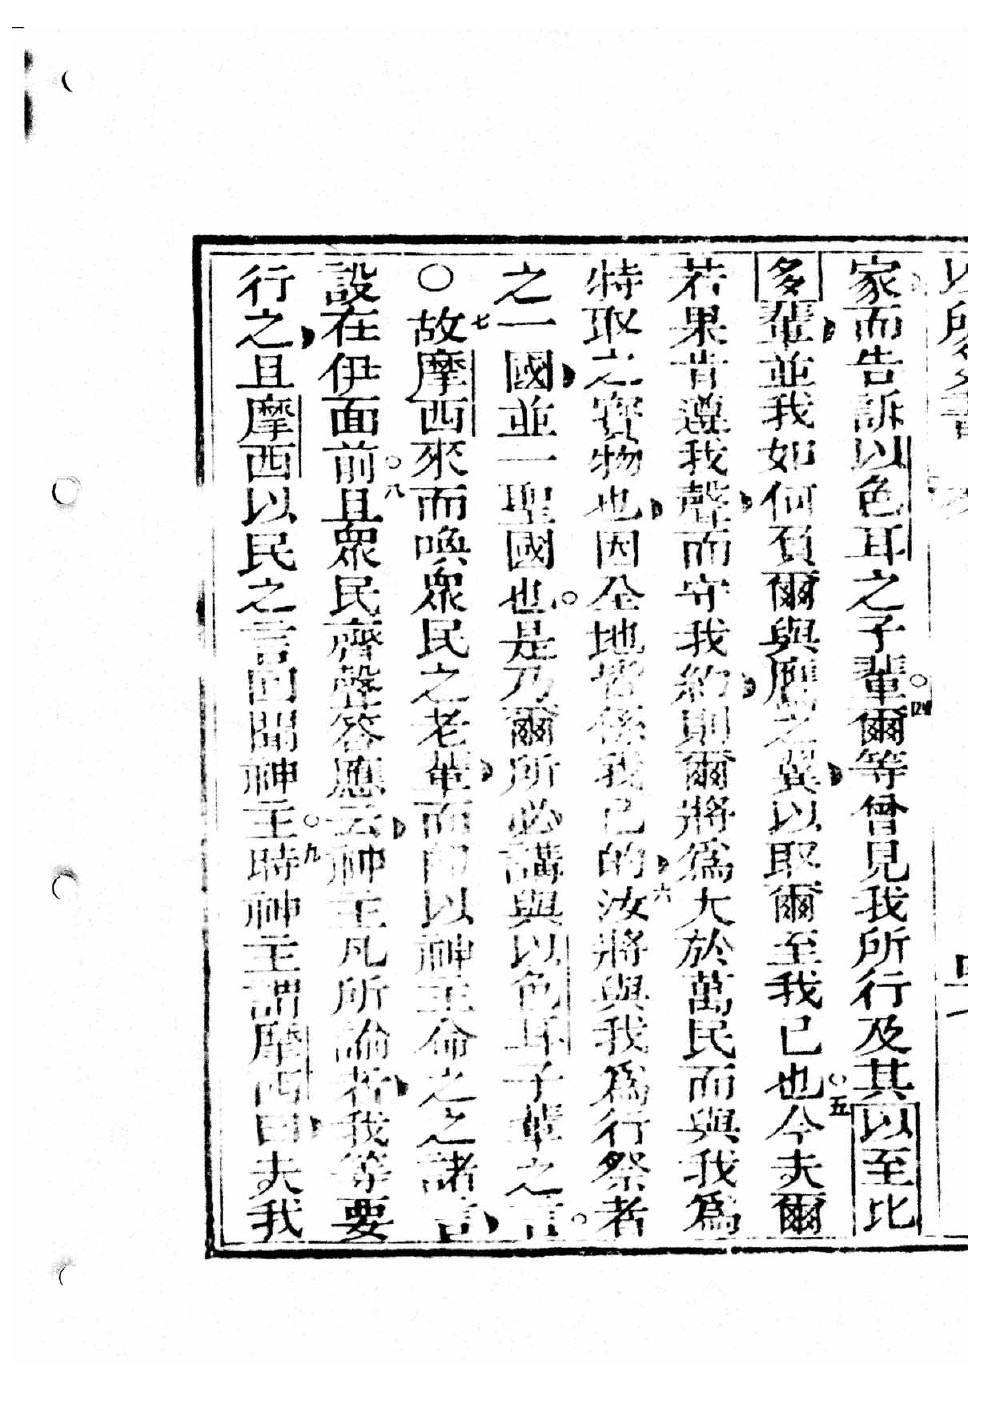 家而告訴以色耳之子輩○四爾等曾見我所行及其以至比
多輩並我如何負爾與鷹之翼以取爾至我已也○五今夫爾
若果肯遵我聲而守我約則爾將為大於萬民而與我為
特取之寶物也因全地皆係我己的六汝將與我為行祭者
之一國並一聖國也○是乃爾所必講與以色耳子輩之言○
○七故摩西來而喚眾民之老輩而即以神主命之之諸言
設在伊面前○八且眾民齊聲答應云神主凡所諭者我等要
行之且摩西以民之言回聞神主○九時神主謂摩西曰夫我